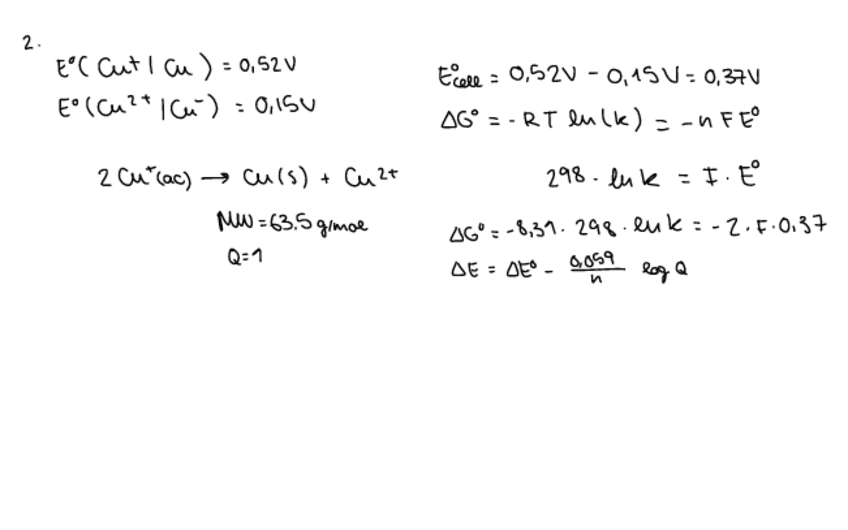 2.
E°( Cu+ | Cu ) = 0,52V
E° (Cu2+ | Cu-) = 0,15V
2 Cu+(ac) → Cu(s) + Cu2+
MW = 63.5 g/mol
Q=1
E°cell = 0,52V - 0,15V = 0,37V
ΔG° = - RT ln(k) = -n F E°
298 . ln k = I . E°
ΔG° = -8,31 . 298 . ln k = - 2 . F . 0,37
ΔE = ΔE° - 0,059/n log Q